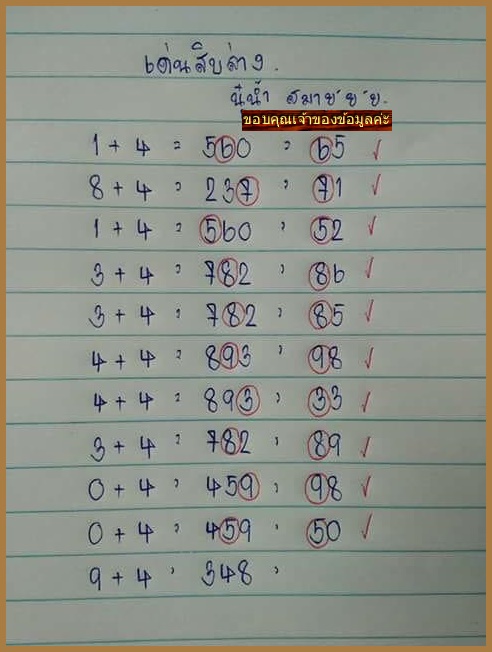 เด่นสิบล่าง.
นุ๊น้ำ สมายยย.
ขอบคุณเจ้าของข้อมูลค่ะ
1 + 4 = 560 = 65 ✓
8 + 4 = 237 = 71 ✓
1 + 4 = 560 = 52 ✓
3 + 4 = 782 = 86 ✓
3 + 4 = 782 = 85 ✓
4 + 4 = 893 = 98 ✓
4 + 4 = 893 = 33 ✓
3 + 4 = 782 = 89 ✓
0 + 4 = 459 = 98 ✓
0 + 4 = 459 = 50 ✓
9 + 4 = 348 =